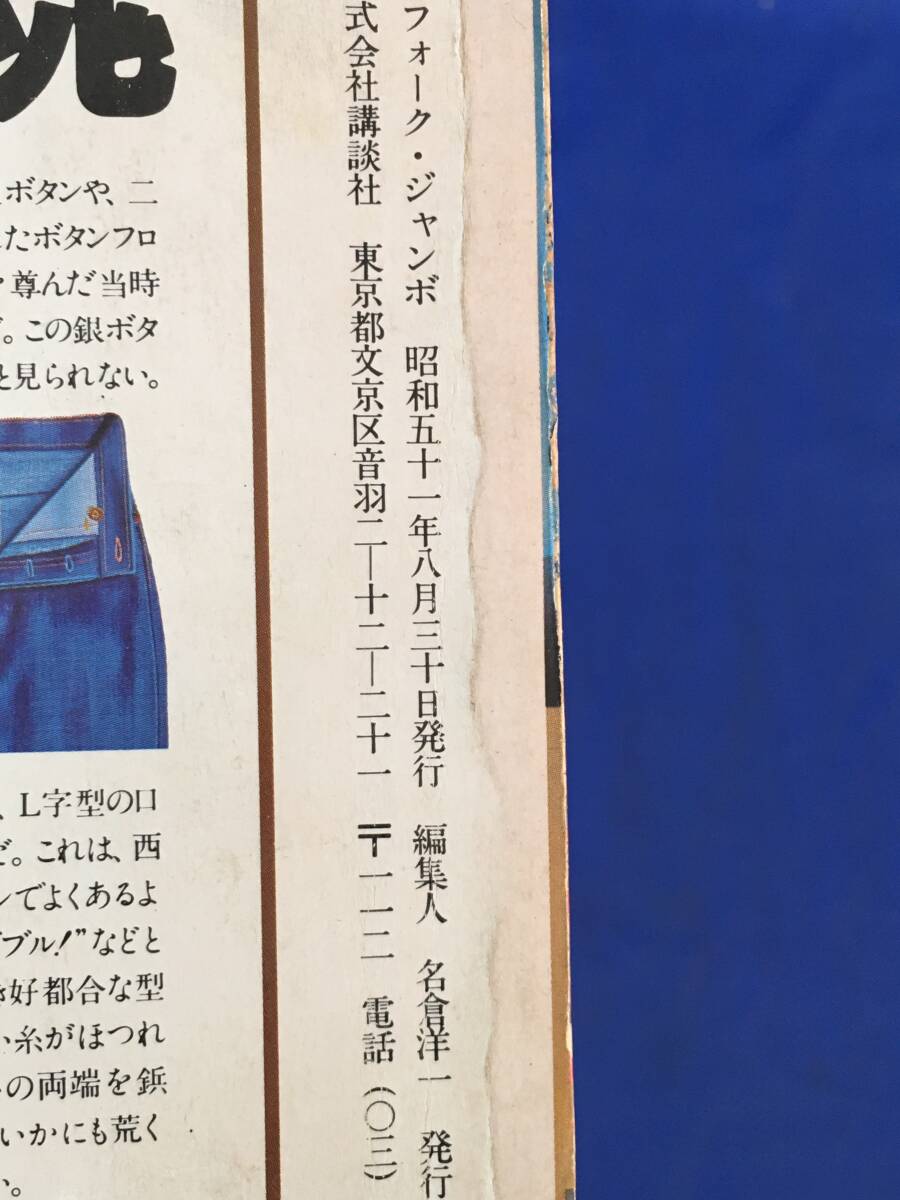 フォーク・ジャンボ 昭和五十一年八月三十日発行 編集人 名倉洋一 発行
式会社講談社 東京都文京区音羽二―十二―二十一 〒一一二 電話(〇三)
ボタンや、二
たボタンフロ
尊んだ当時
。この銀ボタ
と見られない。
、L字型の口
だ。これは、西
ンでよくあるよ
ブル!”などと
好都合な型
い糸がほつれ
の両端を鋲
いかにも荒く
い。